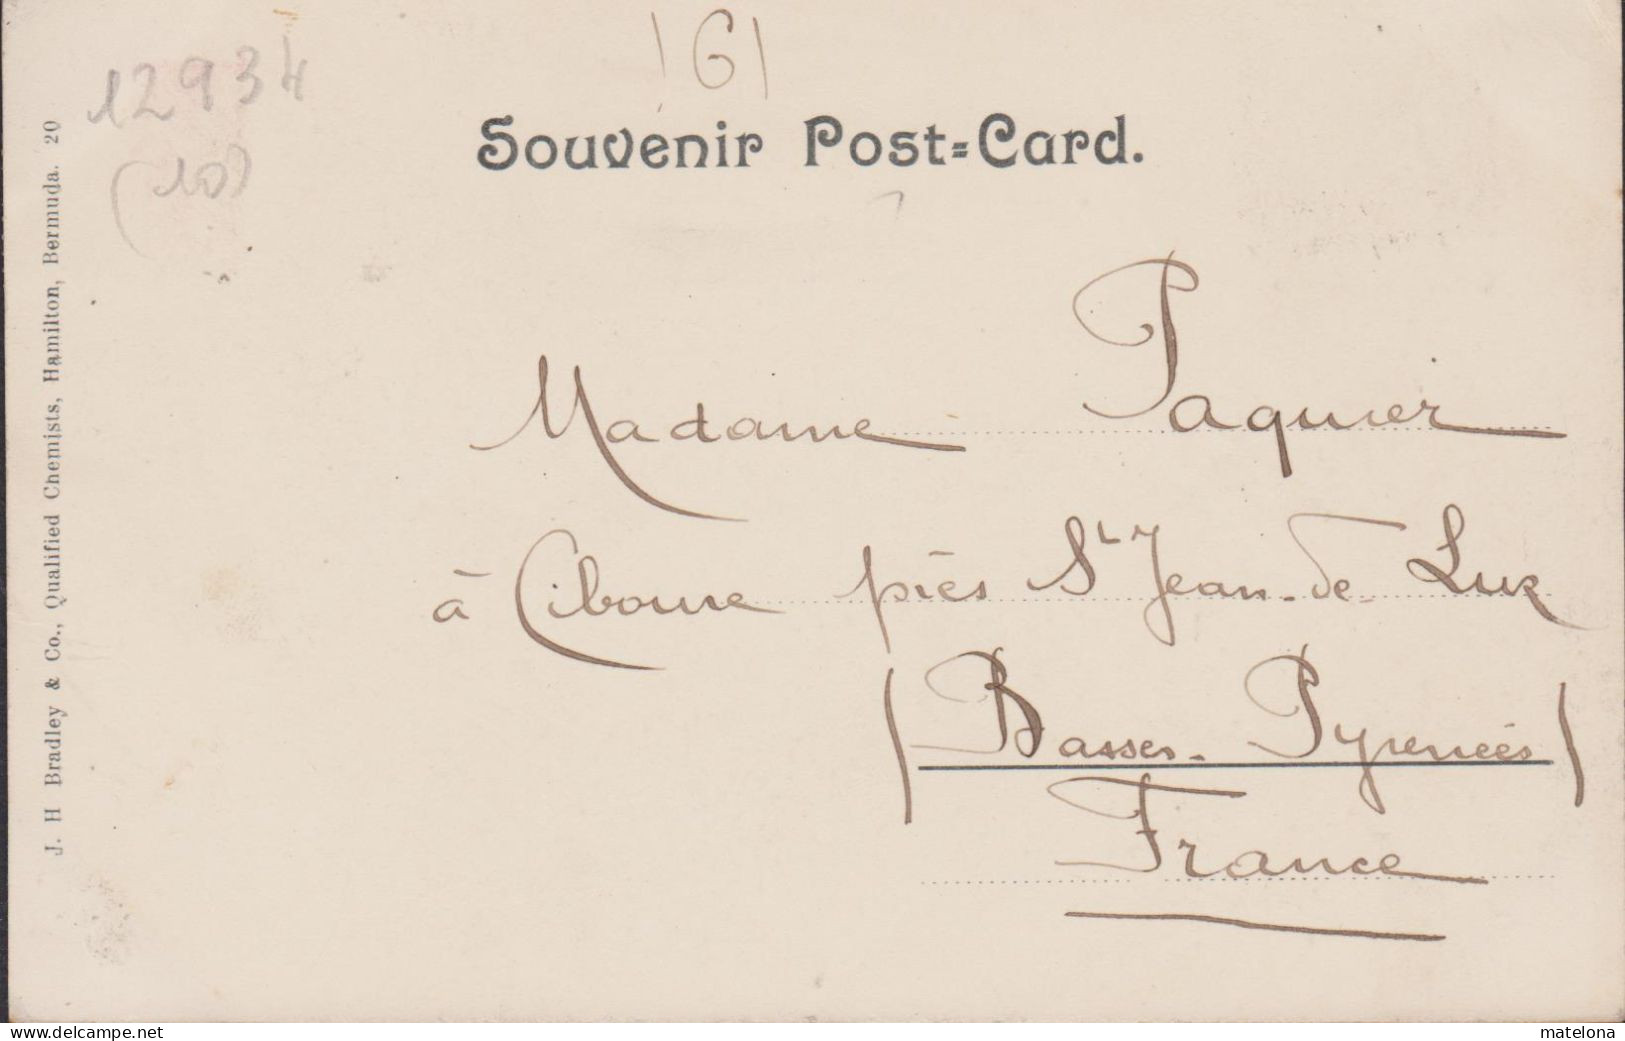 (6)
12934
(10)
Souvenir Post-Card.
J. H Bradley & Co., Qualified Chemists, Hamilton, Bermuda. 20
Madame Paquier
à Ciboure près St Jean-de-Luz
(Basses-Pyrénées)
France
www.delcampe.net
matelona